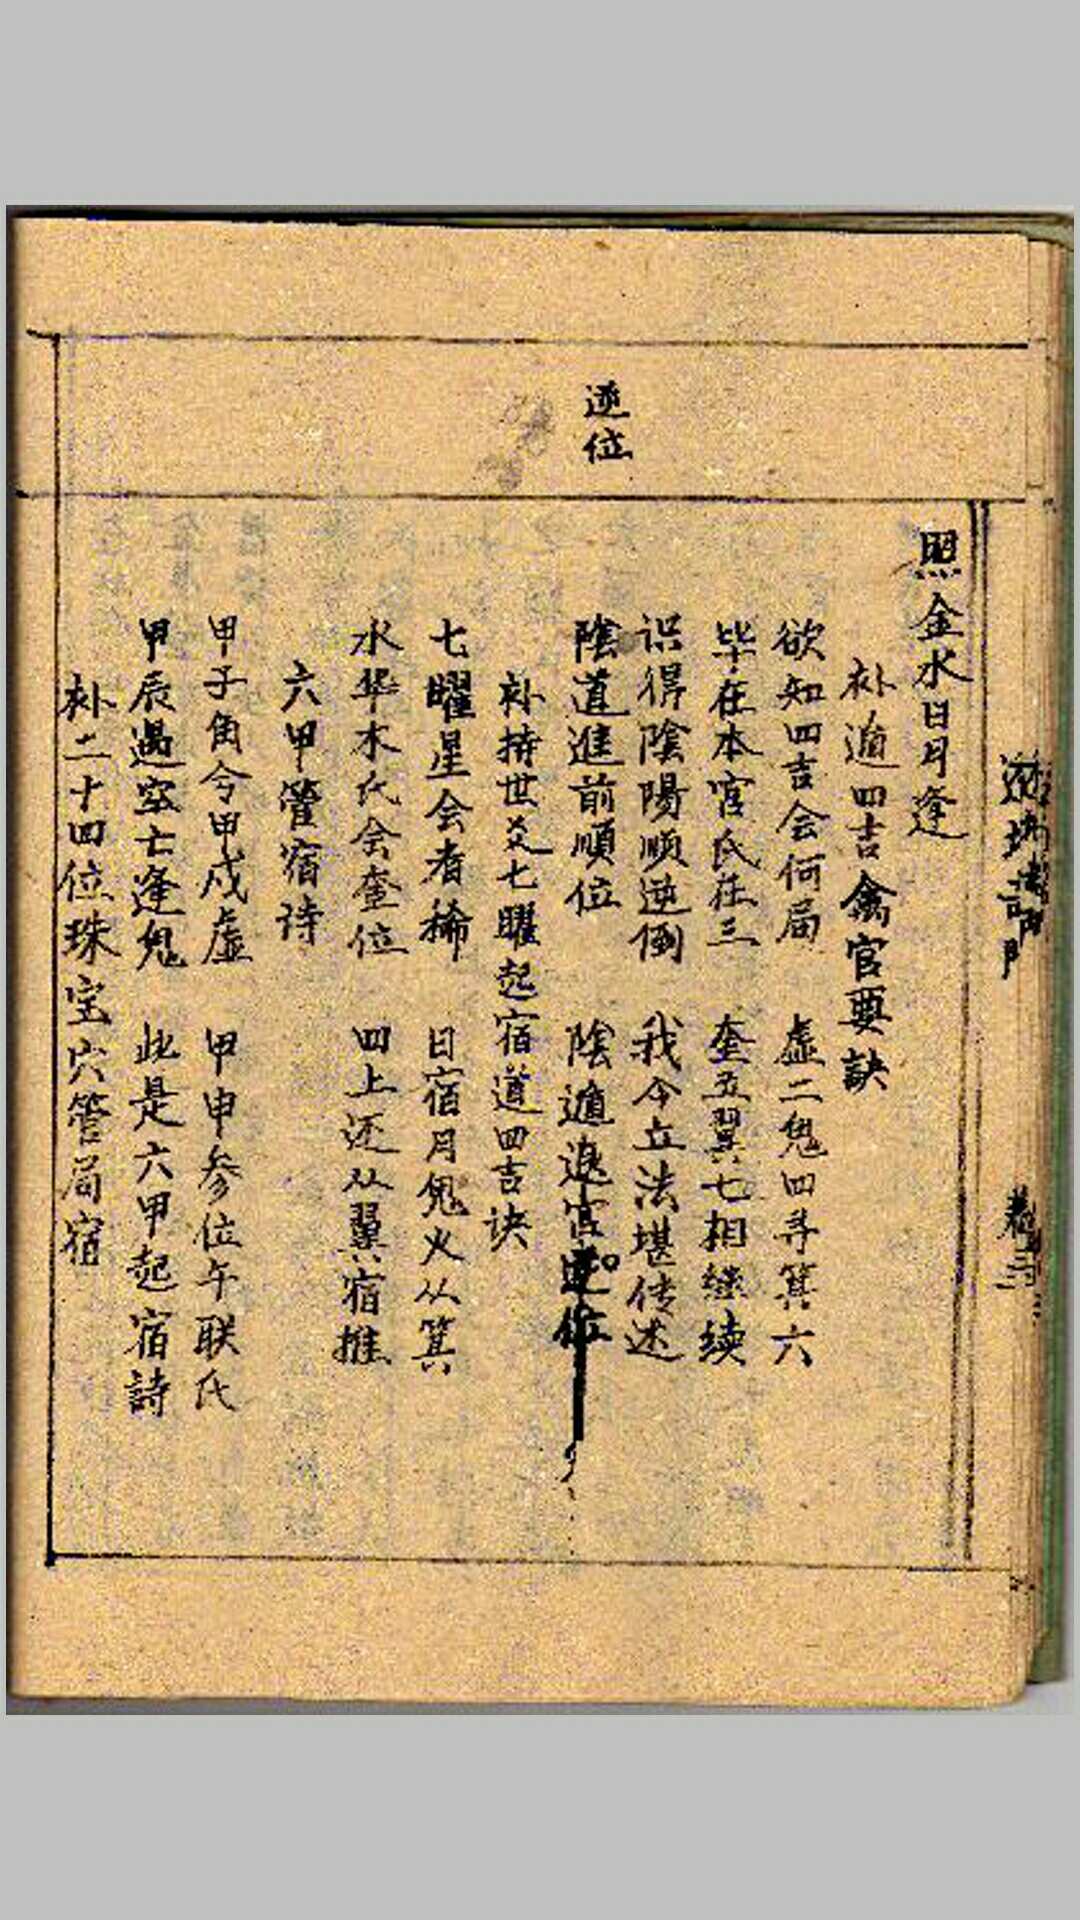 卷三
照金水日月逢
补遁四吉禽官要訣
欲知四吉会何局 虚二鬼四斗箕六
毕在本宫氏在三 奎五翼七相继续
识得陰陽順逆倒 我今立法堪传述
逆位
陰道進前順位 陰遁退宫逆位
补持世爻七曜起宿道四吉诀
七曜星会者稀 日宿月鬼火从箕
水毕木氏会奎位 四上还从翼宿推
六甲管宿诗
甲子角今甲戍虚 甲申参位午联氏
甲辰遇空亡逢鬼 此是六甲起宿詩
补二十四位珠宝穴管局宿